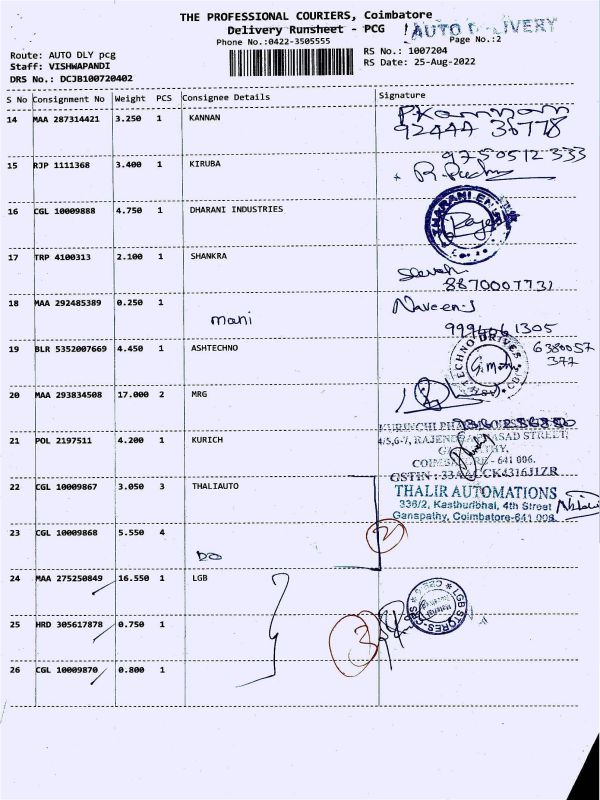 THE PROFESSIONAL COURIERS, Coimbatore
Delivery Runsheet - PCG
AUTO DELIVERY
Phone No.:0422-3505555
Page No.:2
Route: AUTO DLY pcg
RS No.: 1007204
Staff: VISHWAPANDI
RS Date: 25-Aug-2022
DRS No.: DCJB100720402
S No Consignment No Weight PCS Consignee Details Signature
14 MAA 287314421 3.250 1 KANNAN
92444 36778
15 RJP 1111368 3.400 1 KIRUBA
9750512333
16 CGL 10009888 4.750 1 DHARANI INDUSTRIES
17 TRP 4100313 2.100 1 SHANKRA
8870007731
18 MAA 292485389 0.250 1
mani
Naveen-J
9994061305
19 BLR 5352007669 4.450 1 ASHTECHNO
TECHNO DRIVES
6380057
377
20 MAA 293834508 17.000 2 MRG
21 POL 2197511 4.200 1 KURICH
4/5,6-7, RAJENDRA PRASAD STREET,
COIMBATORE - 641 006.
22 CGL 10009867 3.050 3 THALIAUTO
THALIR AUTOMATIONS
336/2, Kasthuribhai, 4th Street
Ganspathy, Coimbatore-641 006
23 CGL 10009868 5.550 4
DO
2
24 MAA 275250849 16.550 1 LGB
LGB STORES-CBE
25 HRD 305617878 0.750 1
3
26 CGL 10009870 0.800 1